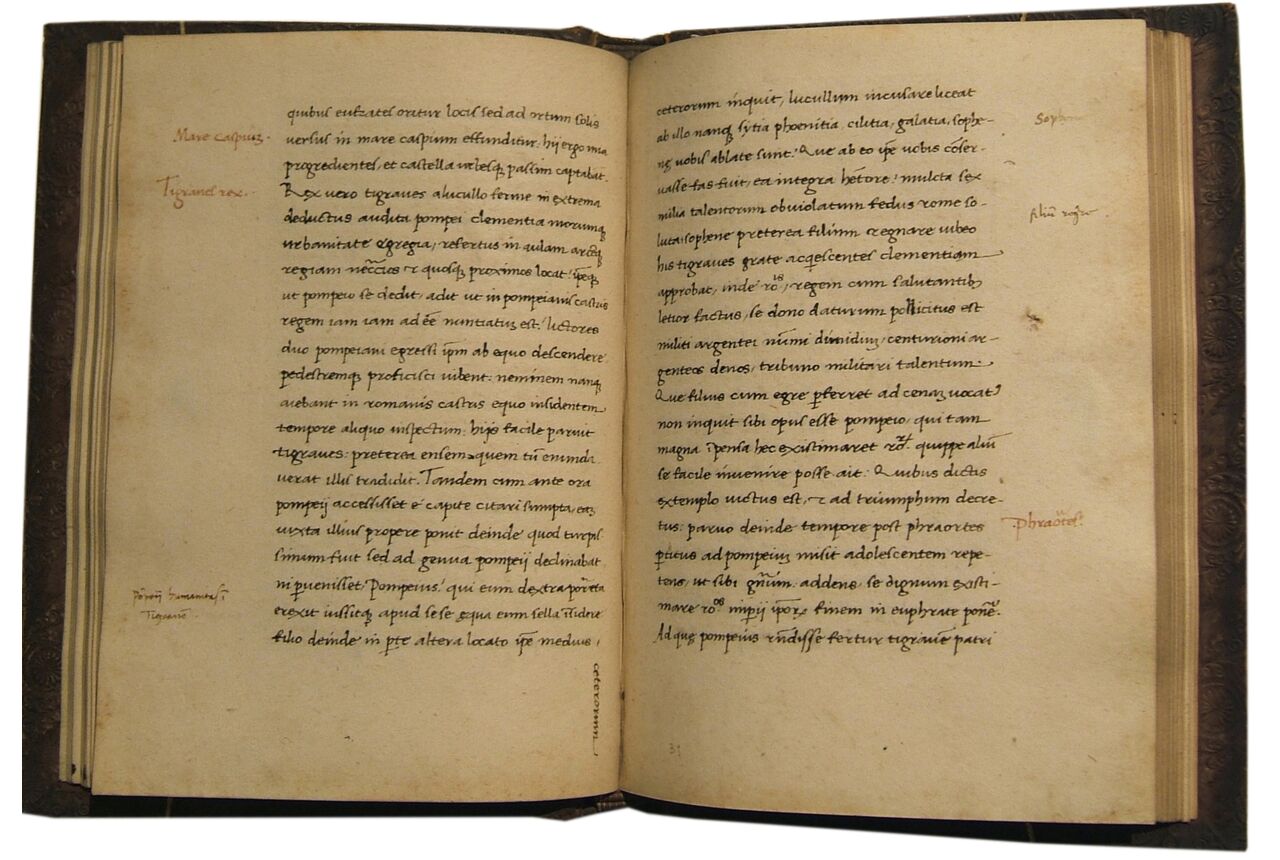 quibus eufzates oritur locis sed ad ortum solis
Mare caspium.
versus in mare caspium effunditur: hij ergo una
progredientes, et castella urbesq passim captabat.
Tigranes rex.
Rex vero tigranes a lucullo ferme in extrema
deductus audita pompei clementia morumq
urbanitate egregia, refertus in aulam arcēq
regiam nēccios & quosq proximos locat: ipēq
ut pompeio se dedit, adit ut in pompeianis castris
regem iam iam ad eē nuntiatuz est: lictores
duo pompeiani egressi ip̄m ab equo descendere
pedestremq proficisci iubent: neminem nanq
aiebant in romanis castris equo insidentem
tempore aliquo inspectum: hijs facile paruit
tigranes: preterea ensem quem tū enunda
verat illis tradidit. Tandem cum ante ora
pompeij accessisset e capite citari sumpta, eaz
iuxta illius propere ponit deinde quod turpis
simum fuit sed ad genua pompeij declinabat
ni puenisset. Pompeius: qui eum dextra
Tigranē
erexit iussitq apud sese equa eum sella
filio deinde in pte altera locato ipē medius,
ceterorum
ceterorum inquit, lucullum incusare liceat
Sophene
ab illo nanq sytia phoenitia, cilitia, galatia, sophe-
nq vobis ablate sunt: Que ab eo ipē vobis cōser-
vasse fas fuit, ea integra hētore: mulcta sex
milia talentorum ob violatum fedus rome so-
luta: sophene preterea filium regnare iubeo
his tigranes grate acqescentes clementiam
approbat, inde roīs, regem cum salutantib
letior factus, se dono daturum pollicitus est
militi argentei nūmi dimidiuz, centurioni ar-
genteos denos, tribuno militari talentum.
Que filius cum egre pferret ad cenaz vocat
non inquit sibi opus esse pompeio, qui tam
magna ipensa hec existimaret quippe aliū
se facile invenire posse ait: Quibus dictis
extemplo victus est, & ad triumphum decre-
Phraortes.
tus: paruo deinde tempore post phraortes
pticus ad pompeiuz misit adolescentem repe-
tens, ut sibi gn̄um: addens, se dignum existi-
mare roos imperij ipor, finem in euphrate ponē.
Ad quē pompeius rn̄disse fertur tigranē patri
31